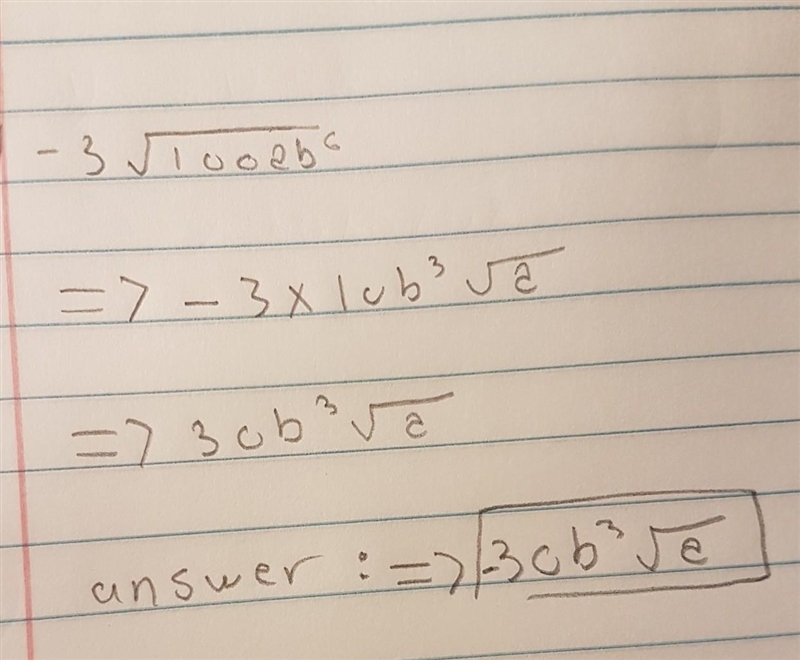 - 3 √100ab⁶
=> - 3 × 10b³ √a
=> 30b³ √a
answer : => -30b³ √a